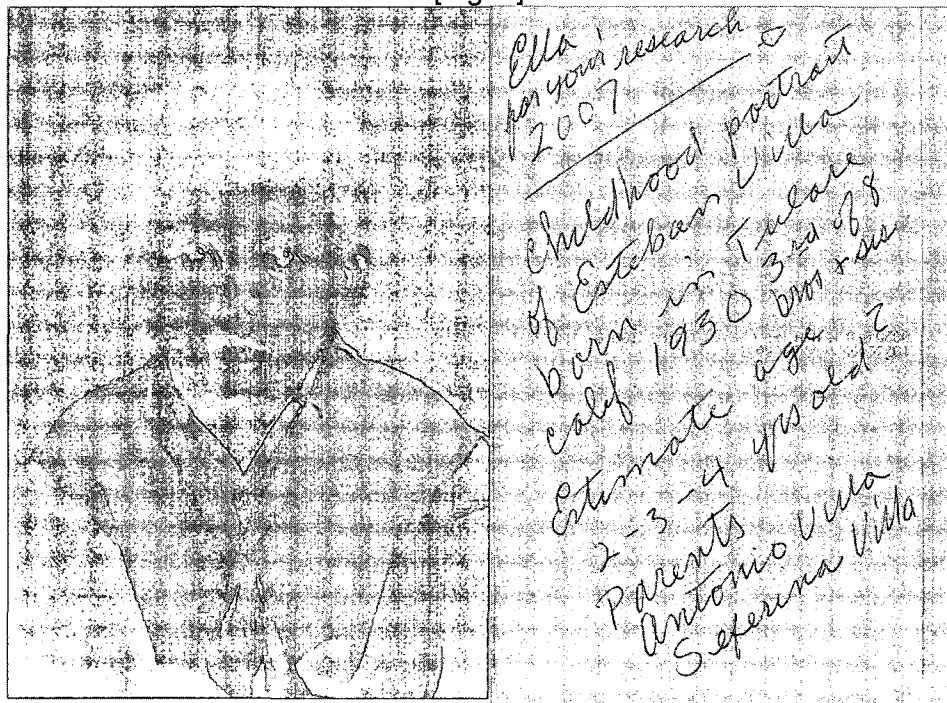 Ella,
for your research
2007
Childhood portrait
of Esteban Villa
born in Tulare
Calif 1930 3rd of 8
bros + sis
Estimate age ?
2-3-4 yrs old
Parents
Antonio Villa
Seferina Villa